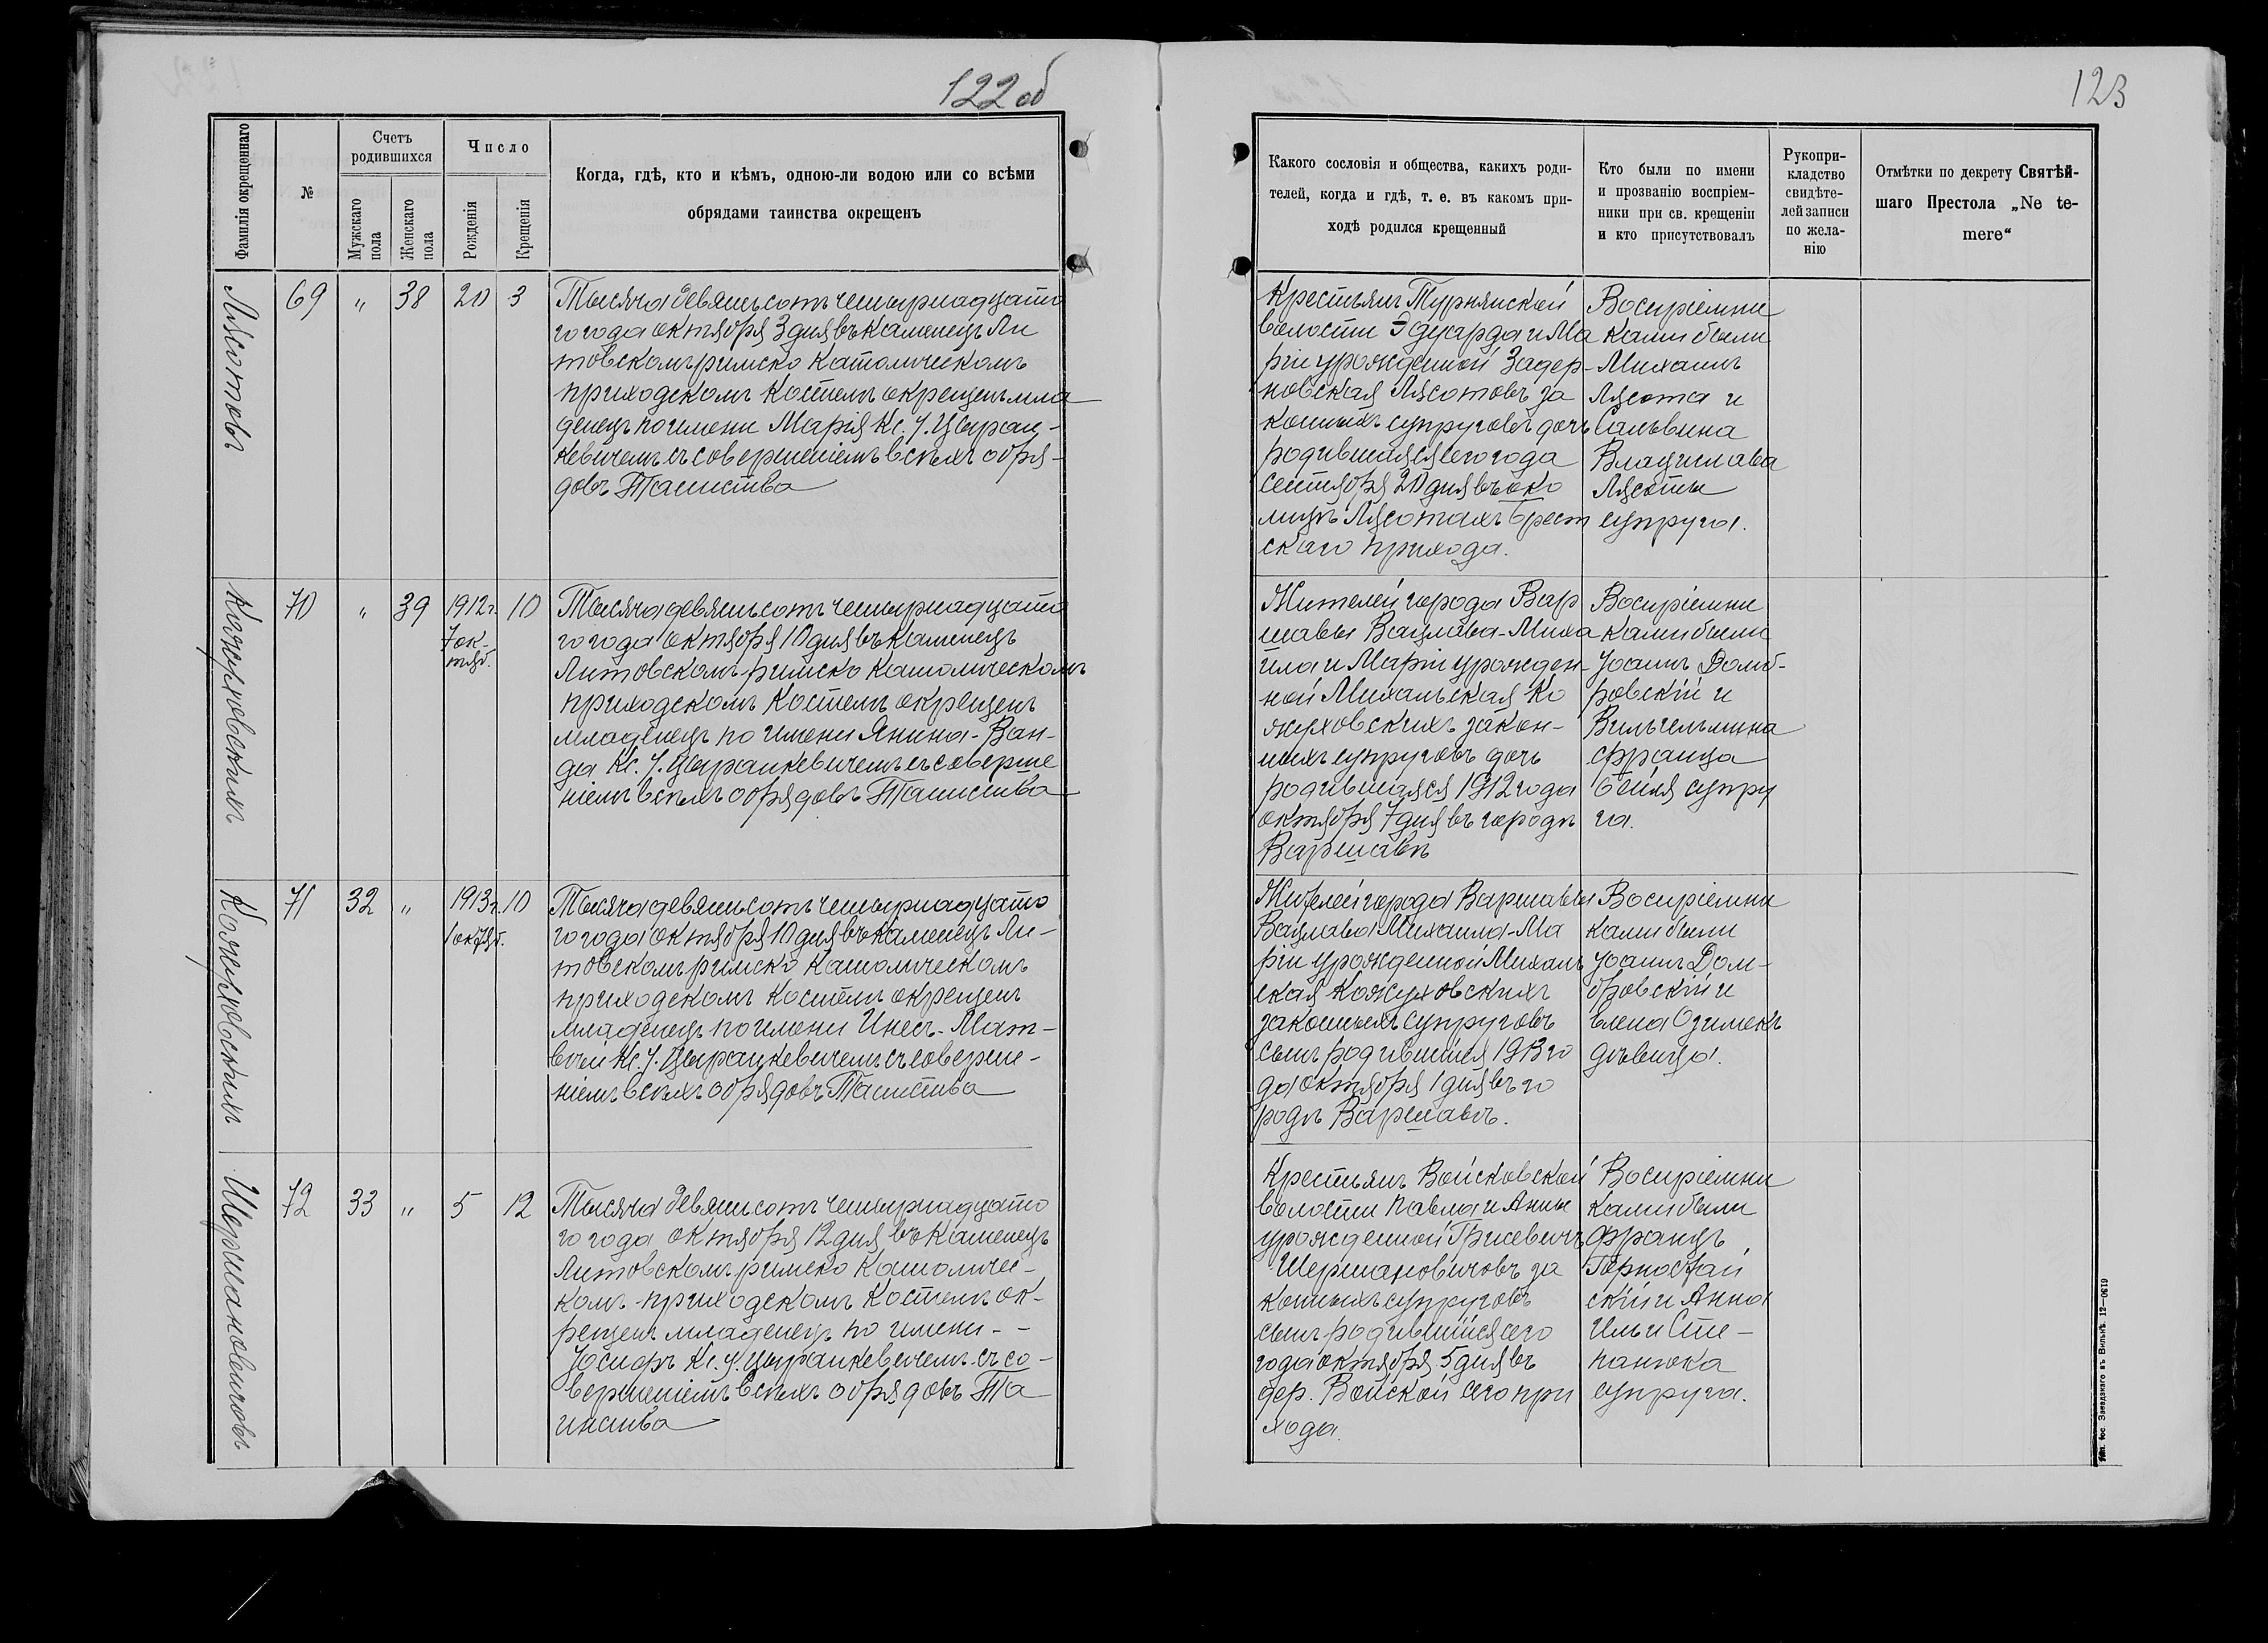 122 об
Фамилія окрещеннаго
№
Счетъ
родившихся
Мужскаго
пола
Женскаго
пола
Число
Рожденія
Крещенія
Когда, гдѣ, кто и кѣмъ, одною-ли водою или со всѣми
обрядами таинства окрещенъ
Лясотовъ
69
"
38
20
3
Тысяча девятьсотъ четырнадцата
го года октября 3 дня въ Каменецъ Ли
товскомъ римско католическомъ
приходскомъ костелѣ окрещенъ мла
денецъ по имени Марія Кс. І. Цыран-
кевичемъ съ совершеніемъ всѣхъ обря-
довъ Таинства
Кожуховскихъ
70
"
39
1912 г.
7 ок-
тяб.
10
Тысяча девятьсотъ четырнадцата
го года октября 10 дня въ Каменецъ
Литовскомъ римско католическомъ
приходскомъ костелѣ окрещенъ
младенецъ по имени Янина-Ван-
да Кс. І. Цыранкевичемъ съ соверше
ніемъ всѣхъ обрядовъ Таинства
Кожуховскихъ
71
32
"
1913 г.
1 октяб.
10
Тысяча девятьсотъ четырнадцато
го года октября 10 дня въ Каменецъ Ли-
товскомъ римско католическомъ
приходскомъ костелѣ окрещенъ
младенецъ по имени Инесъ-Мат-
вѣй Кс. І. Цыранкевичемъ съ соверше-
ніемъ всѣхъ обрядовъ Таинства
Шермановичовъ
72
33
"
5
12
Тысяча девятьсотъ четырнадцато
го года октября 12 дня въ Каменецъ
Литовскомъ римско католичес-
комъ приходскомъ костелѣ ок-
рещенъ младенецъ по имени - -
Іосифъ Кс. І. Цыранкевичемъ съ со-
вершеніемъ всѣхъ обрядовъ Та
инства
123
Какого сословія и общества, какихъ роди-
телей, когда и гдѣ, т. е. въ какомъ при-
ходѣ родился крещенный
Кто были по имени
и прозванію воспріем-
ники при св. крещеніи
и кто присутствовалъ
Рукопри-
кладство
свидѣте-
лей записи
по жела-
нію
Отмѣтки по декрету Святѣй-
шаго Престола „Ne te-
mere“
Крестьянъ Турнянской
волости Эдуарда и Ма
ріи урожденной Задер-
новская Лясотовъ за
конныхъ супруговъ дочь
родившаяся сего года
сентября 20 дня въ око
лицѣ Лясотахъ Брест
скаго прихода.
Воспріемни
ками были
Михаилъ
Лясота и
Сальвина
Владислава
Лясоты
супруга.
Жителей города Вар
шавы Вацлава-Миха
ила и Маріи урожден-
ной Михальская Ко
жуховскихъ закон-
ныхъ супруговъ дочь
родившаяся 1912 года
октября 7 дня въ городѣ
Варшавѣ
Воспріемни
ками были
Іоаннъ Домб-
ровскій и
Вильгельмина
Франца
супру
га.
Жителей города Варшавы
Вацлава Михаила-Ма
ріи урожденной Михаль
ская Кожуховскихъ
законныхъ супруговъ
сынъ родившійся 1913 го
да октября 1 дня въ го
родѣ Варшавѣ.
Воспріемни
ками были
Іоаннъ Дом-
бровскій и
Елена Озимекъ
дѣвица.
Крестьянъ Войсковской
волости Павла и Анны
урожденной Грисевичъ
Шермановичовъ за
конныхъ супруговъ
сынъ родившійся сего
года октября 5 дня въ
дер. Войской сего при
хода.
Воспріемни
ками были
Францъ
Горностай
скій и Анна
Ильи Сте-
панюка
супруга.
Тип. Іос. Завадзкаго въ Вильнѣ. 12—0619